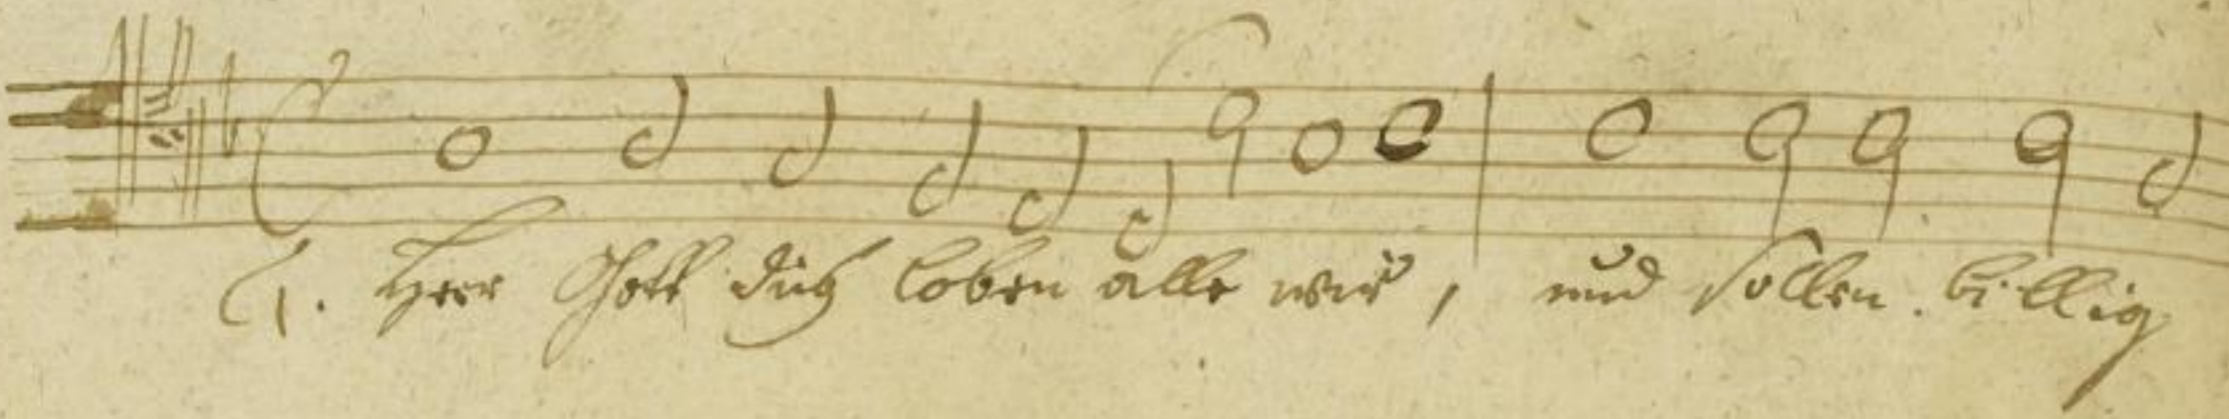 1. Herr Gott dich loben alle wir, und sollen billig